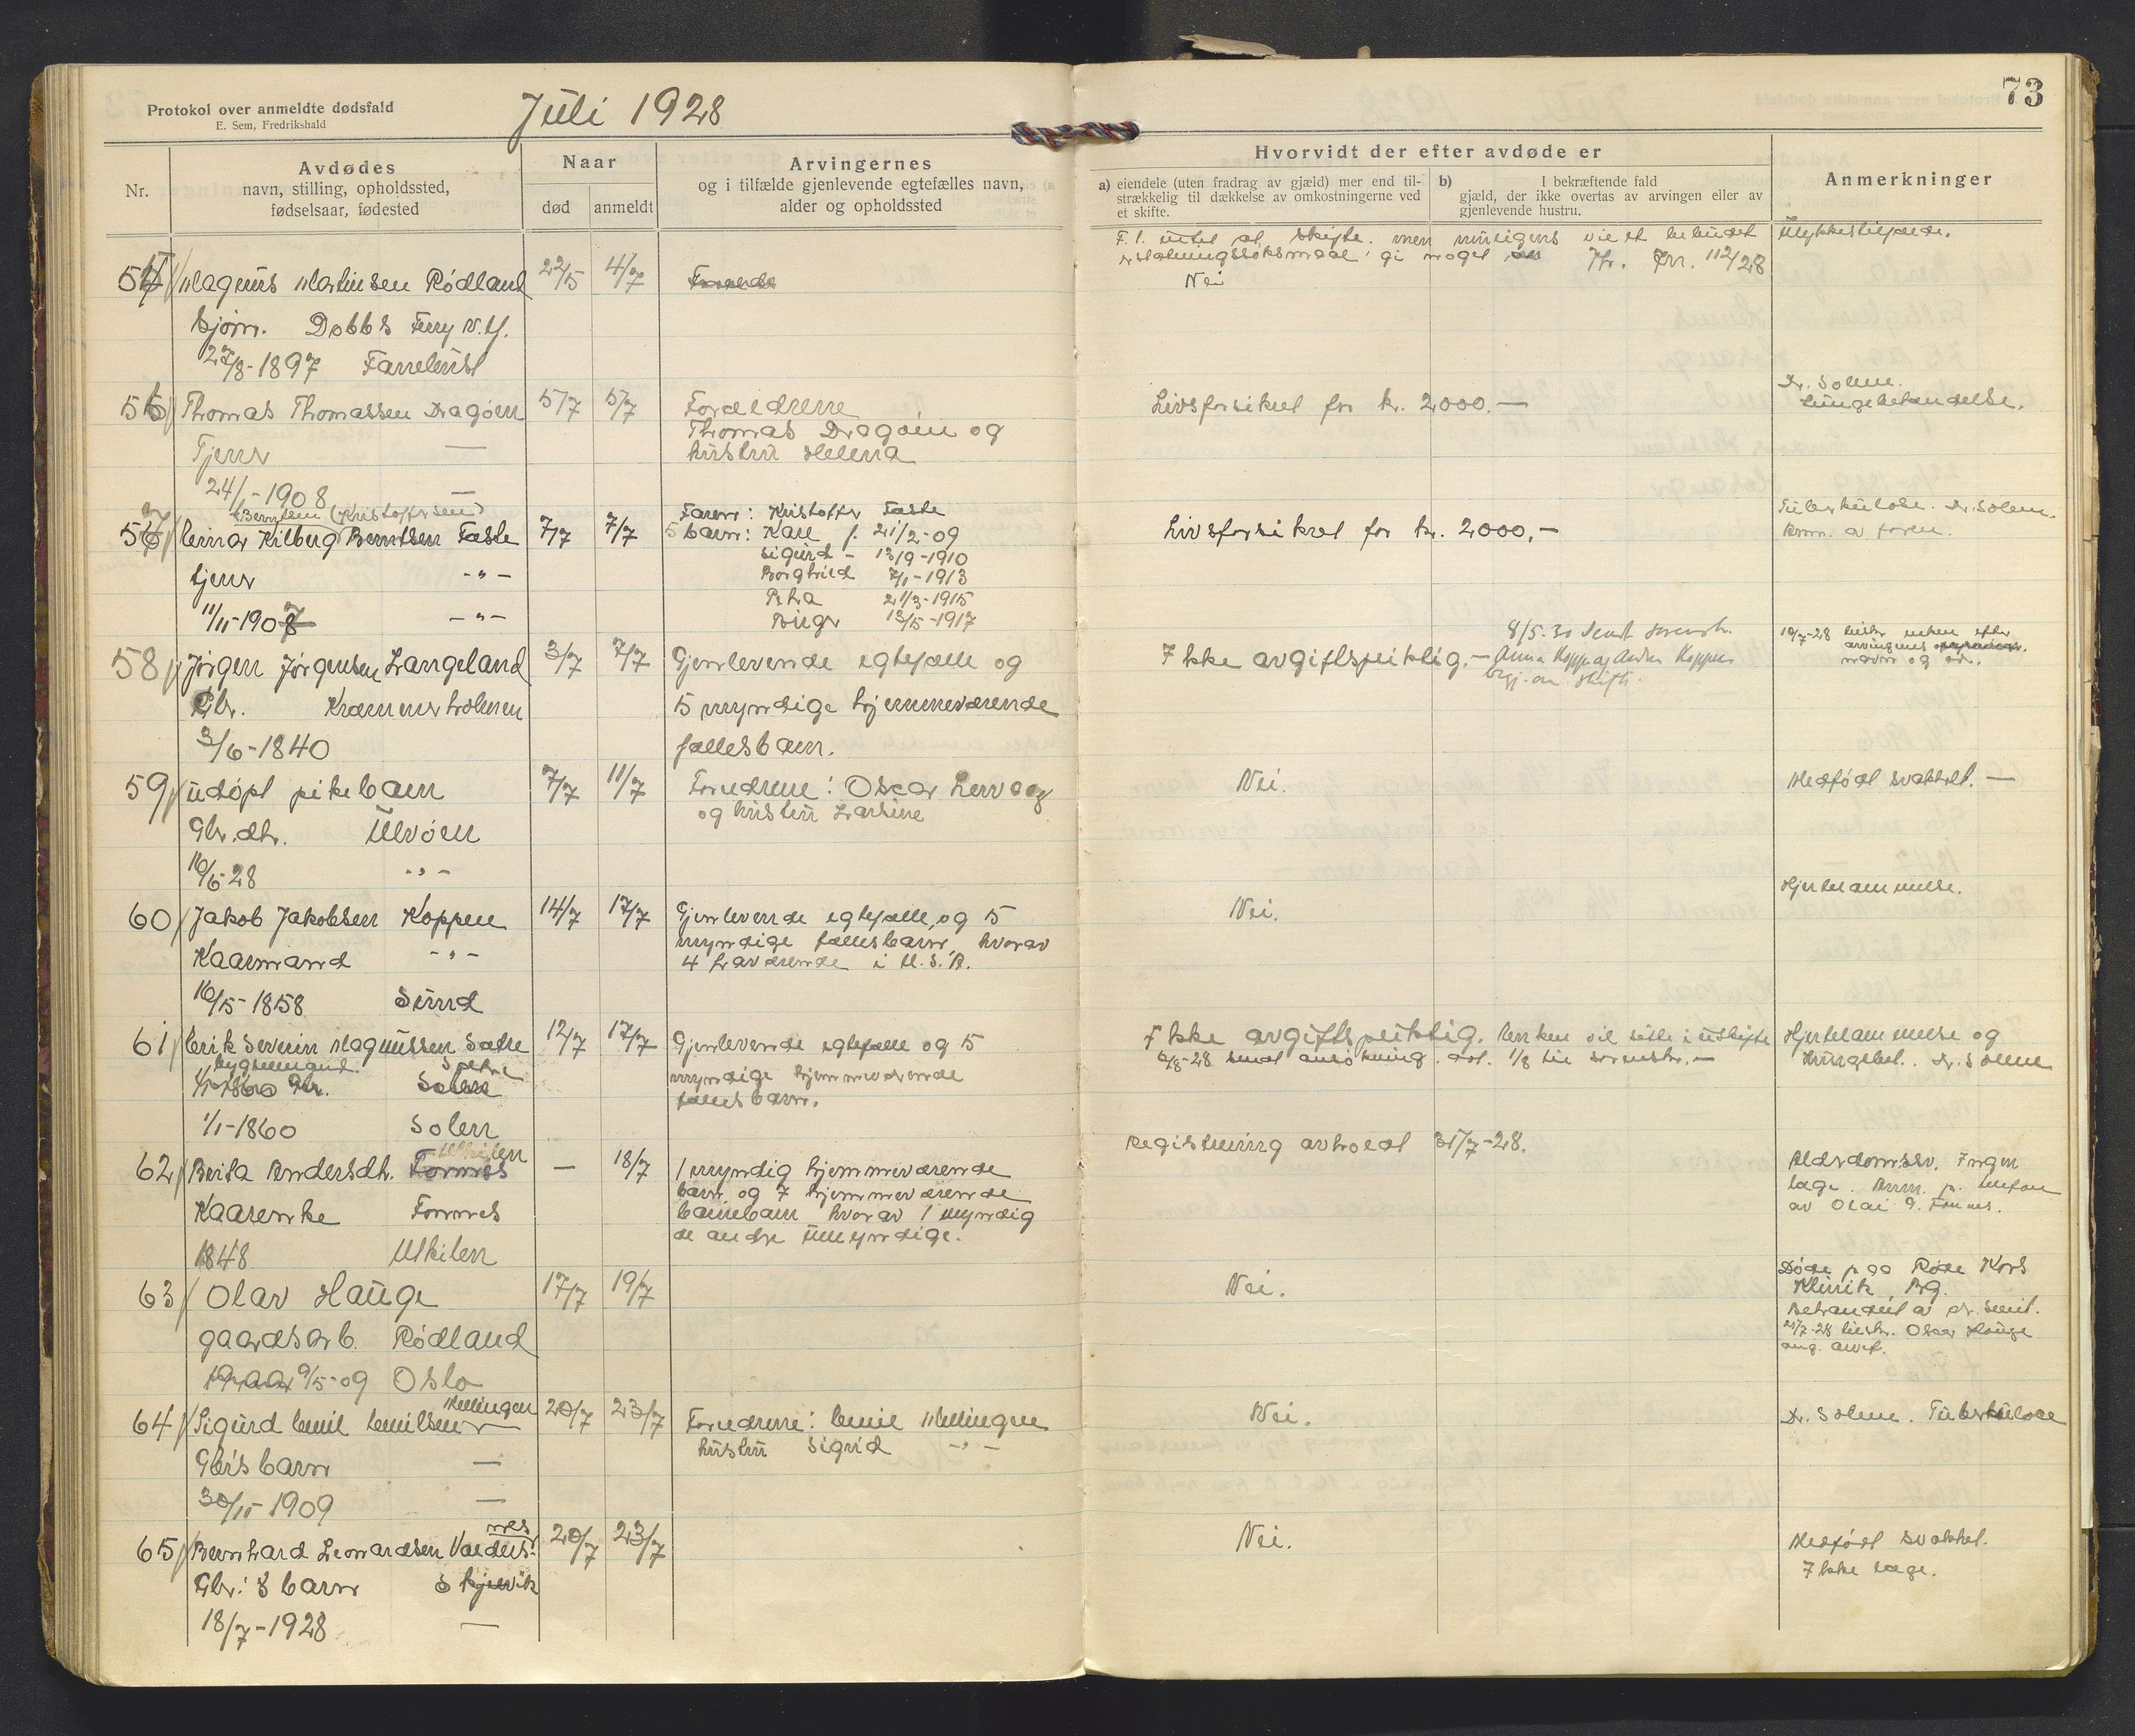 Protokol over anmeldte dødsfald
E. Sem, Fredrikshald
Juli 1928
73
Nr.
Avdødes
navn, stilling, opholdssted,
fødselsaar, fødested
Naar
død
anmeldt
Arvingernes
og i tilfælde gjenlevende egtefælles navn,
alder og opholdssted
Hvorvidt der efter avdøde er
a) eiendele (uten fradrag av gjæld) mer end til-
strækkelig til dækkelse av omkostningerne ved
et skifte.
b) I bekræftende fald
gjæld, der ikke overtas av arvingen eller av
gjenlevende hustru.
Anmerkninger
F. t. intet at skifte. men muligens vil et bebudet
erstatningssøksmaal gi noget. Jr. 112/28
Ulykkestilfælde.
55/ Magnus Martinsen Rødland 22/5 4/7 Forældr Nei
Sjøm. Dobbs Ferry N.Y.
27/8-1897 Farrelust
56/ Thomas Thomassen Dragøen 5/7 5/7 Forældrene Livsforsikret for kr. 2000.—
Dr. Solem.
Lungebetændelse.
Thomas Dragøin og
hustru Helena
Tjener —
24/1-1908 —
Berntsen (Kristoffersen)
57/ Einar Kilberg Berntsen Taste 7/7 7/7 Faren: Kristoffer Taste Livsforsikret for kr. 2000,—
Tuberkulose. Dr. Solem.
Anm. av faren.
5 barn: Karl f. 21/2-09
Sigurd - 13/9-1910
Borghild 7/1-1913
Petra 21/3-1915
Birger 13/5-1917
tjener -"-
11/11-1907 -"-
58/ Jørgen Jørgensen Langeland 3/7 7/7 Gjenlevende egtefælle og Ikke avgiftspliktig.—
8/5.30 sendt sorenskr.
Anna Koppen og Anders Koppen
begj. om skifte.
10/7-28 tilskr. enken efter
arvingenes
navn og adr.
Gbr. Kræmmerholmen 5 myndige hjemmeværende
3/6-1840 fællesbarn.
59/ udøpt pikebarn 7/7 11/7 Forældrene: Oscar Lervaag Nei. Medfødt svakhet.—
og hustru Larsine
Gbr.dtr. Ulvøen
16/6-28 -"-
60/ Jakob Jakobsen Koppen 14/7 17/7 Gjenlevende egtefælle, og 5 Nei. Hjertelammelse.
myndige fællesbarn, hvorav
4 fraværende i U.S.A.
Kaarmand -"-
16/5-1858 Sund
61/ Erik Severin Magnussen Sætre 12/7 17/7 Gjenlevende egtefælle og 5 Ikke avgiftspliktig. Enken vil sitte i uskifte
6/8-28 sendt ansøkning. dat. 1/8 til sorenskr.—
Hjertelammelse og
Lungebet. Dr. Solem
myndige hjemmeværende
fællesbarn.
bygselmand. Sætre
1/1-1860 Gbr. Solem
1/1-1860 Solem
62/ Brita Andersdtr. Fonnes Utkilen — 18/7 1 myndig hjemmeværende Registrering avholdt 31/7-28.
barn og 7 hjemmeværende
barnebarn hvorav 1 myndig
de andre umyndige.
Alderdomssv. Ingen
læge. Anm. p. telefon
av Olai A. Fonnes.
Kaarenke Fonnes
1848 Utkilen
63/ Olav Hauge 17/7 19/7 Nei.
Døde paa Røde Kors
Klinik, Bg.
Behandlet av dr. Smit.
21/7-28 tilskr. Oscar Hauge
ang. arvef.
gaardsarb. Rødland
19 aar 9/5-09 Oslo
64/ Sigurd Emil Emilsen Mellingen 20/7 23/7 Forældrene: Emil Mellingen Nei. Dr. Solem. Tuberkulose
hustru Sigrid -"-
Gbr's barn —
30/11-1909 —
65/ Bernhard Leonardsen Valdersnes 20/7 23/7 Nei. Medfødt svakhet.
Ikke læge.
Gbr.'s barn Skjelvik
18/7-1928 —